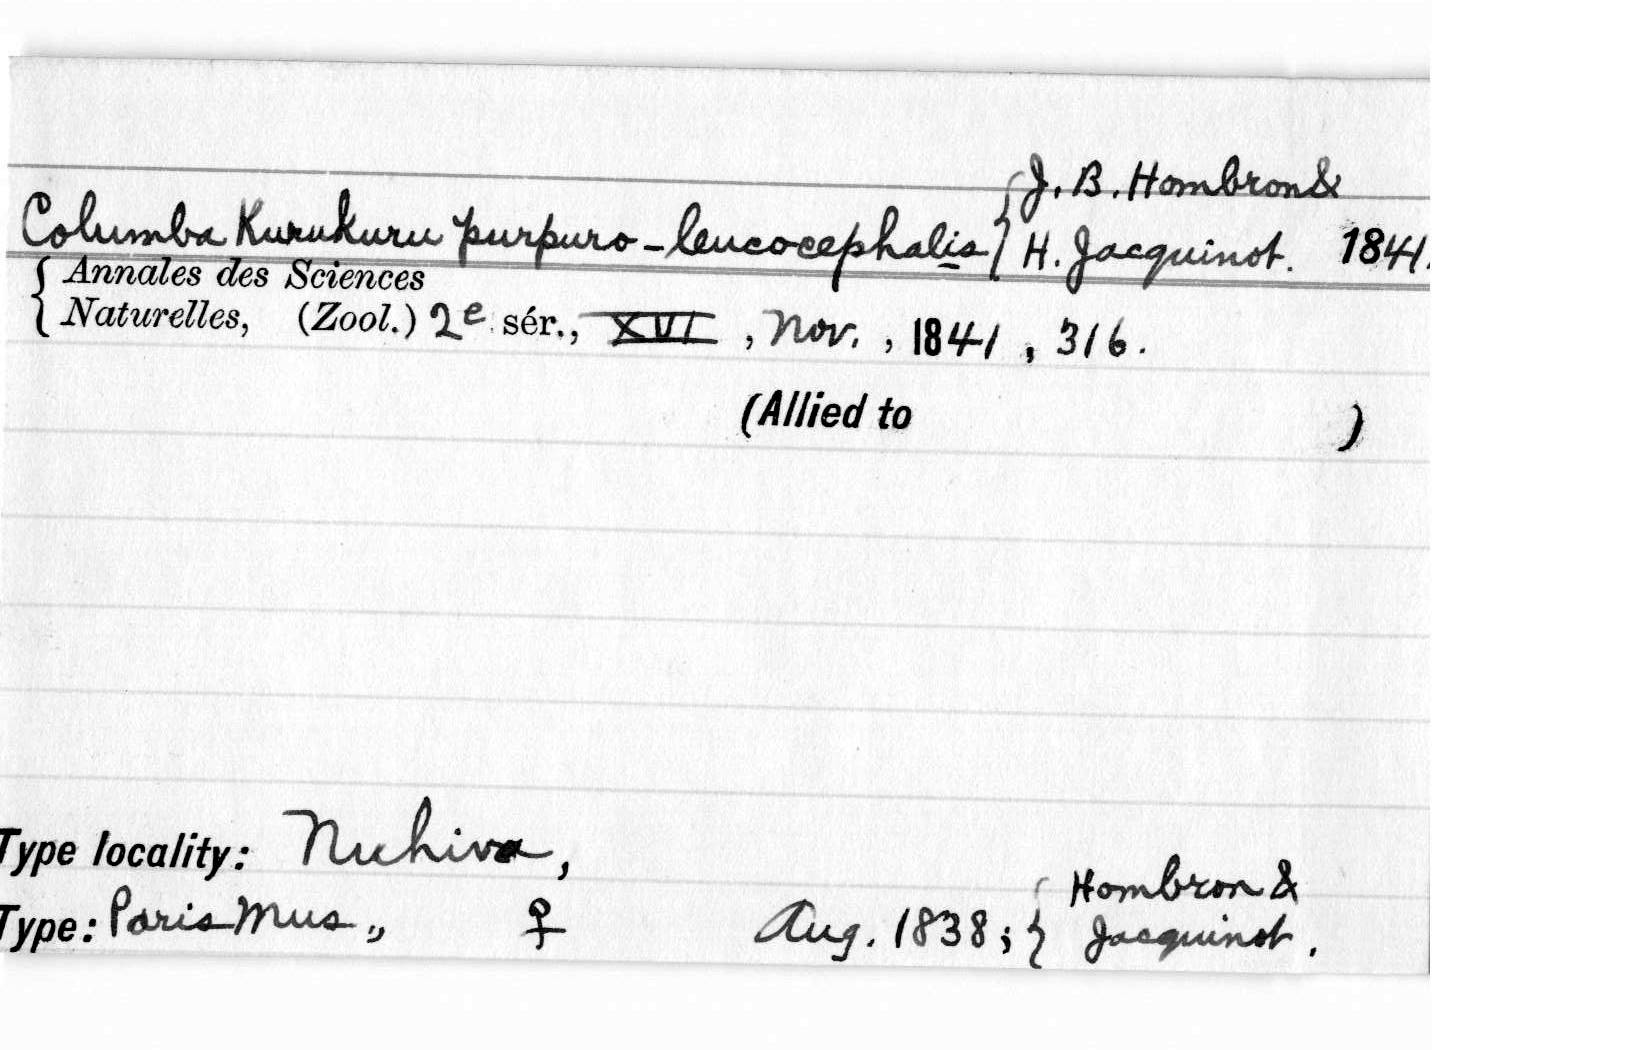 J. B. Hombron &
Columba Kurukuru purpuro-leucocephalis H. Jacquinot. 1841.
Annales des Sciences
Naturelles, (Zool.) 2e sér., XVI, Nov., 1841, 316.
(Allied to )
Type locality: Nuhiva,
Hombron &
Type: Paris Mus., ♀ Aug. 1838; Jacquinot.